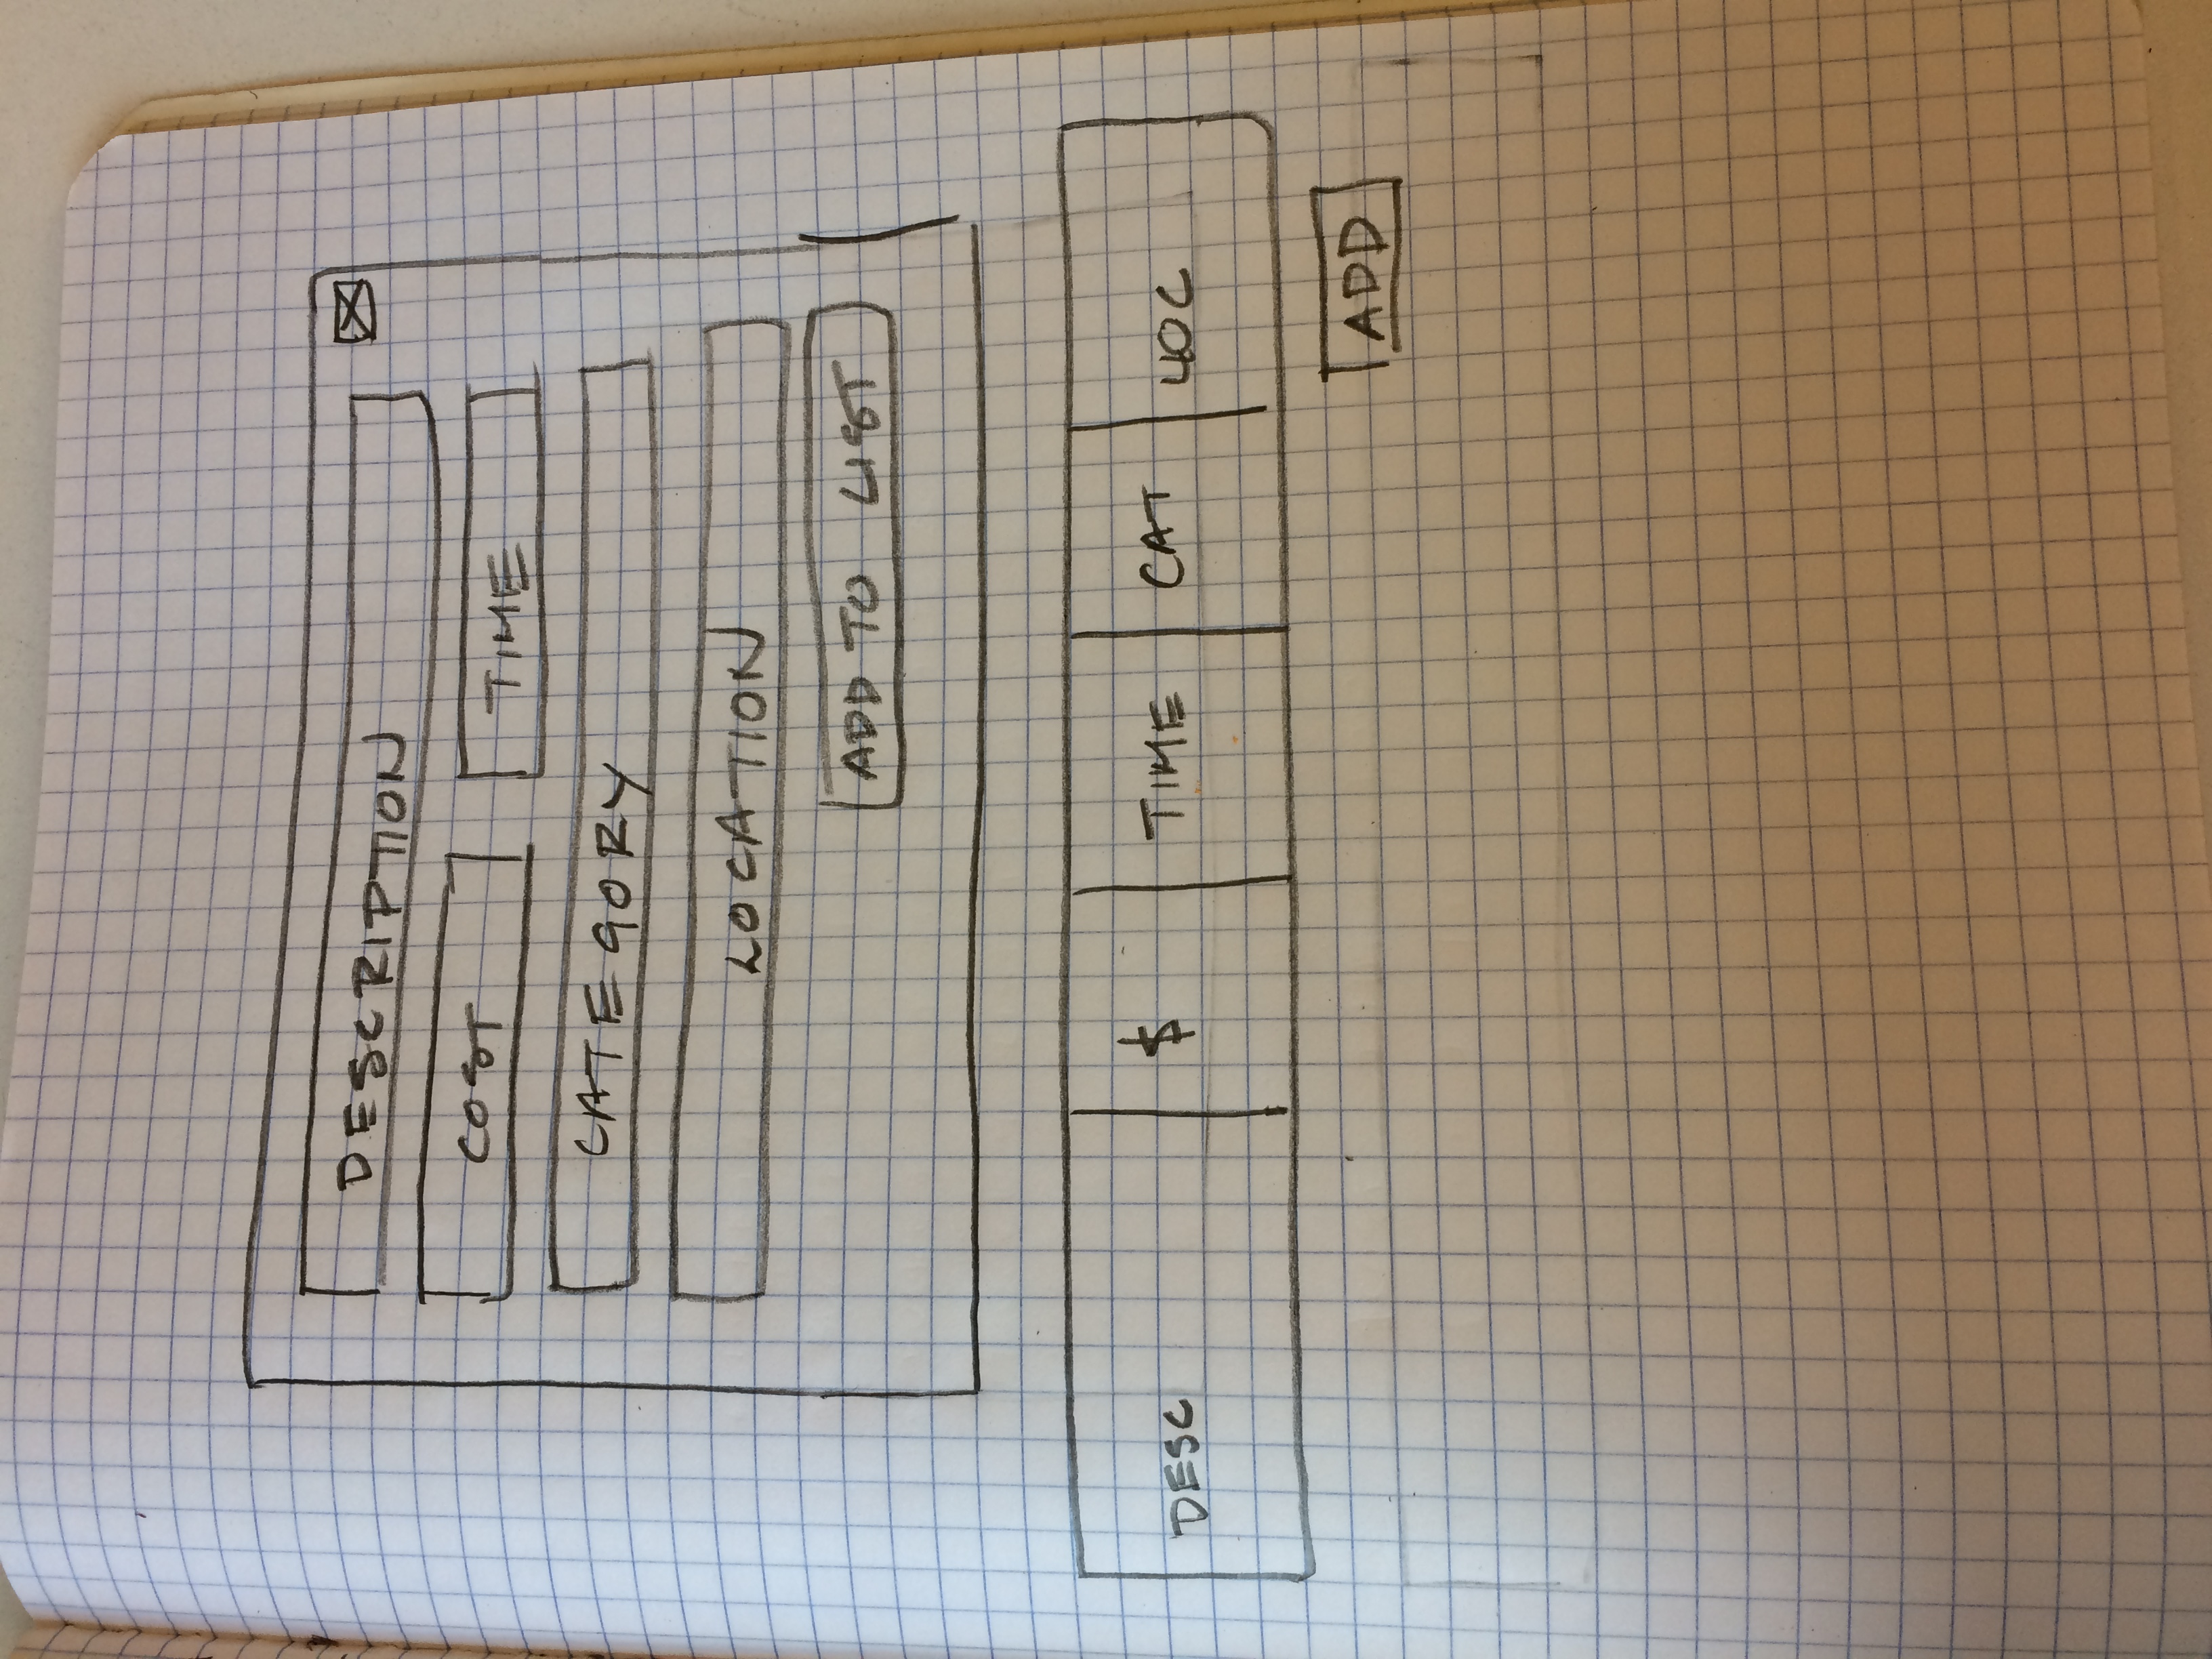 DESCRIPTION
COST TIME
CATEGORY
LOCATION
ADD TO LIST
DESC $ TIME CAT LOC
ADD